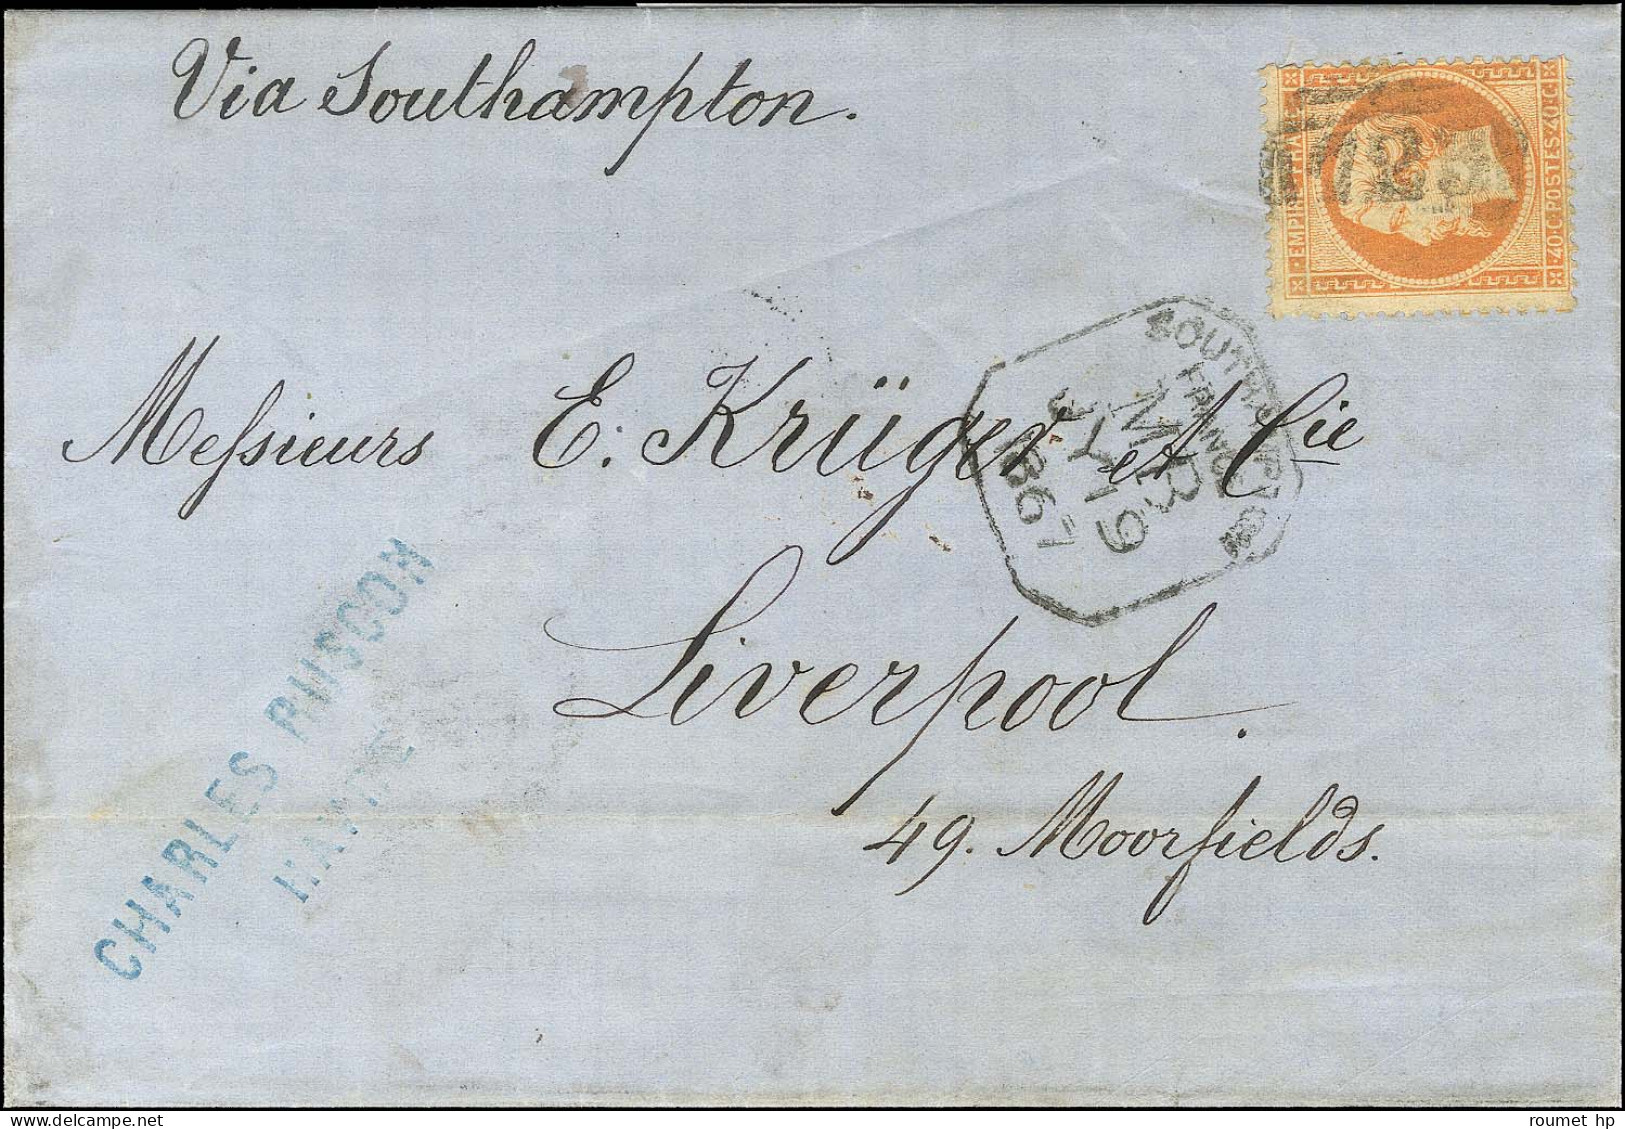 Via Southampton.
EMPIRE FRANC
40.C POSTES 40.C
723
SOUTHAMPTON
FRANCE
MB
JY 19
1867
Messieurs E. Krüger et Cie
Liverpool.
49. Moorfields.
CHARLES PUSCON
HAVRE
roumet hp